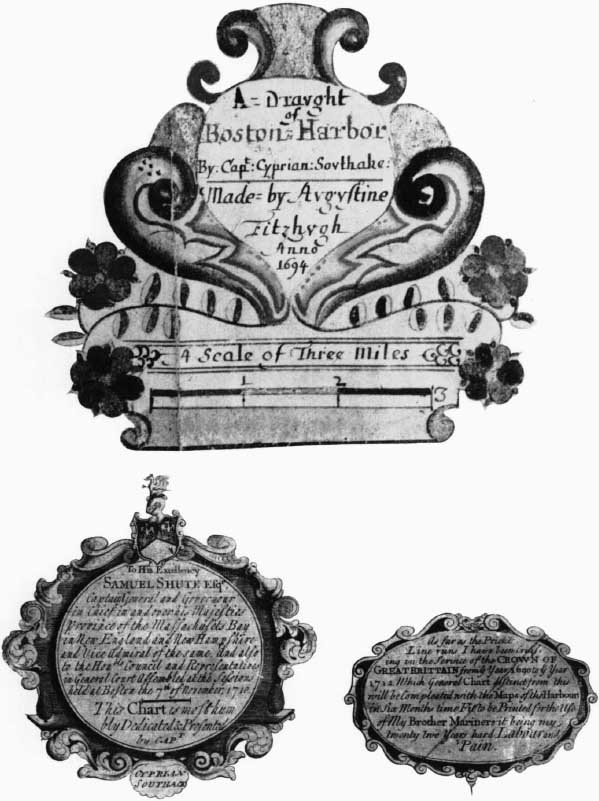 A = Dravght
of
Boston = Harbor
By: Capt: Cyprian: Sovthake:
Made = by Avgvstine
Fitzhvgh
Anno
1694
A Scale of Three Miles
1 2 3
To His Excellency
SAMUEL SHUTE Esqr
Captain General and Governour
in Chief in and over his Majesties
Province of the Massachusets Bay
in New England and New Hampshire
and Vice Admiral of the same, and also
to the Honble Council and Representatives
in General Court Assembled at the Sessions
held at Boston the 7th of November,
This Chart is most hum
bly Dedicated & Presented
by CAPT
CYPRIAN
SOUTHACK
As far as the Prickt
Line runs I have been cruis
ing in the Service of the CROWN OF
GREAT BRITTAIN from ye Year 1690 to ye Year
1712. Which General Chart distinct from this
will be Compleated with the Maps of the Harbours
in Six Months time Fit to be Printed for the Use
of My Brother Mariners it being my
twenty two Years hard Labour and
Pain.